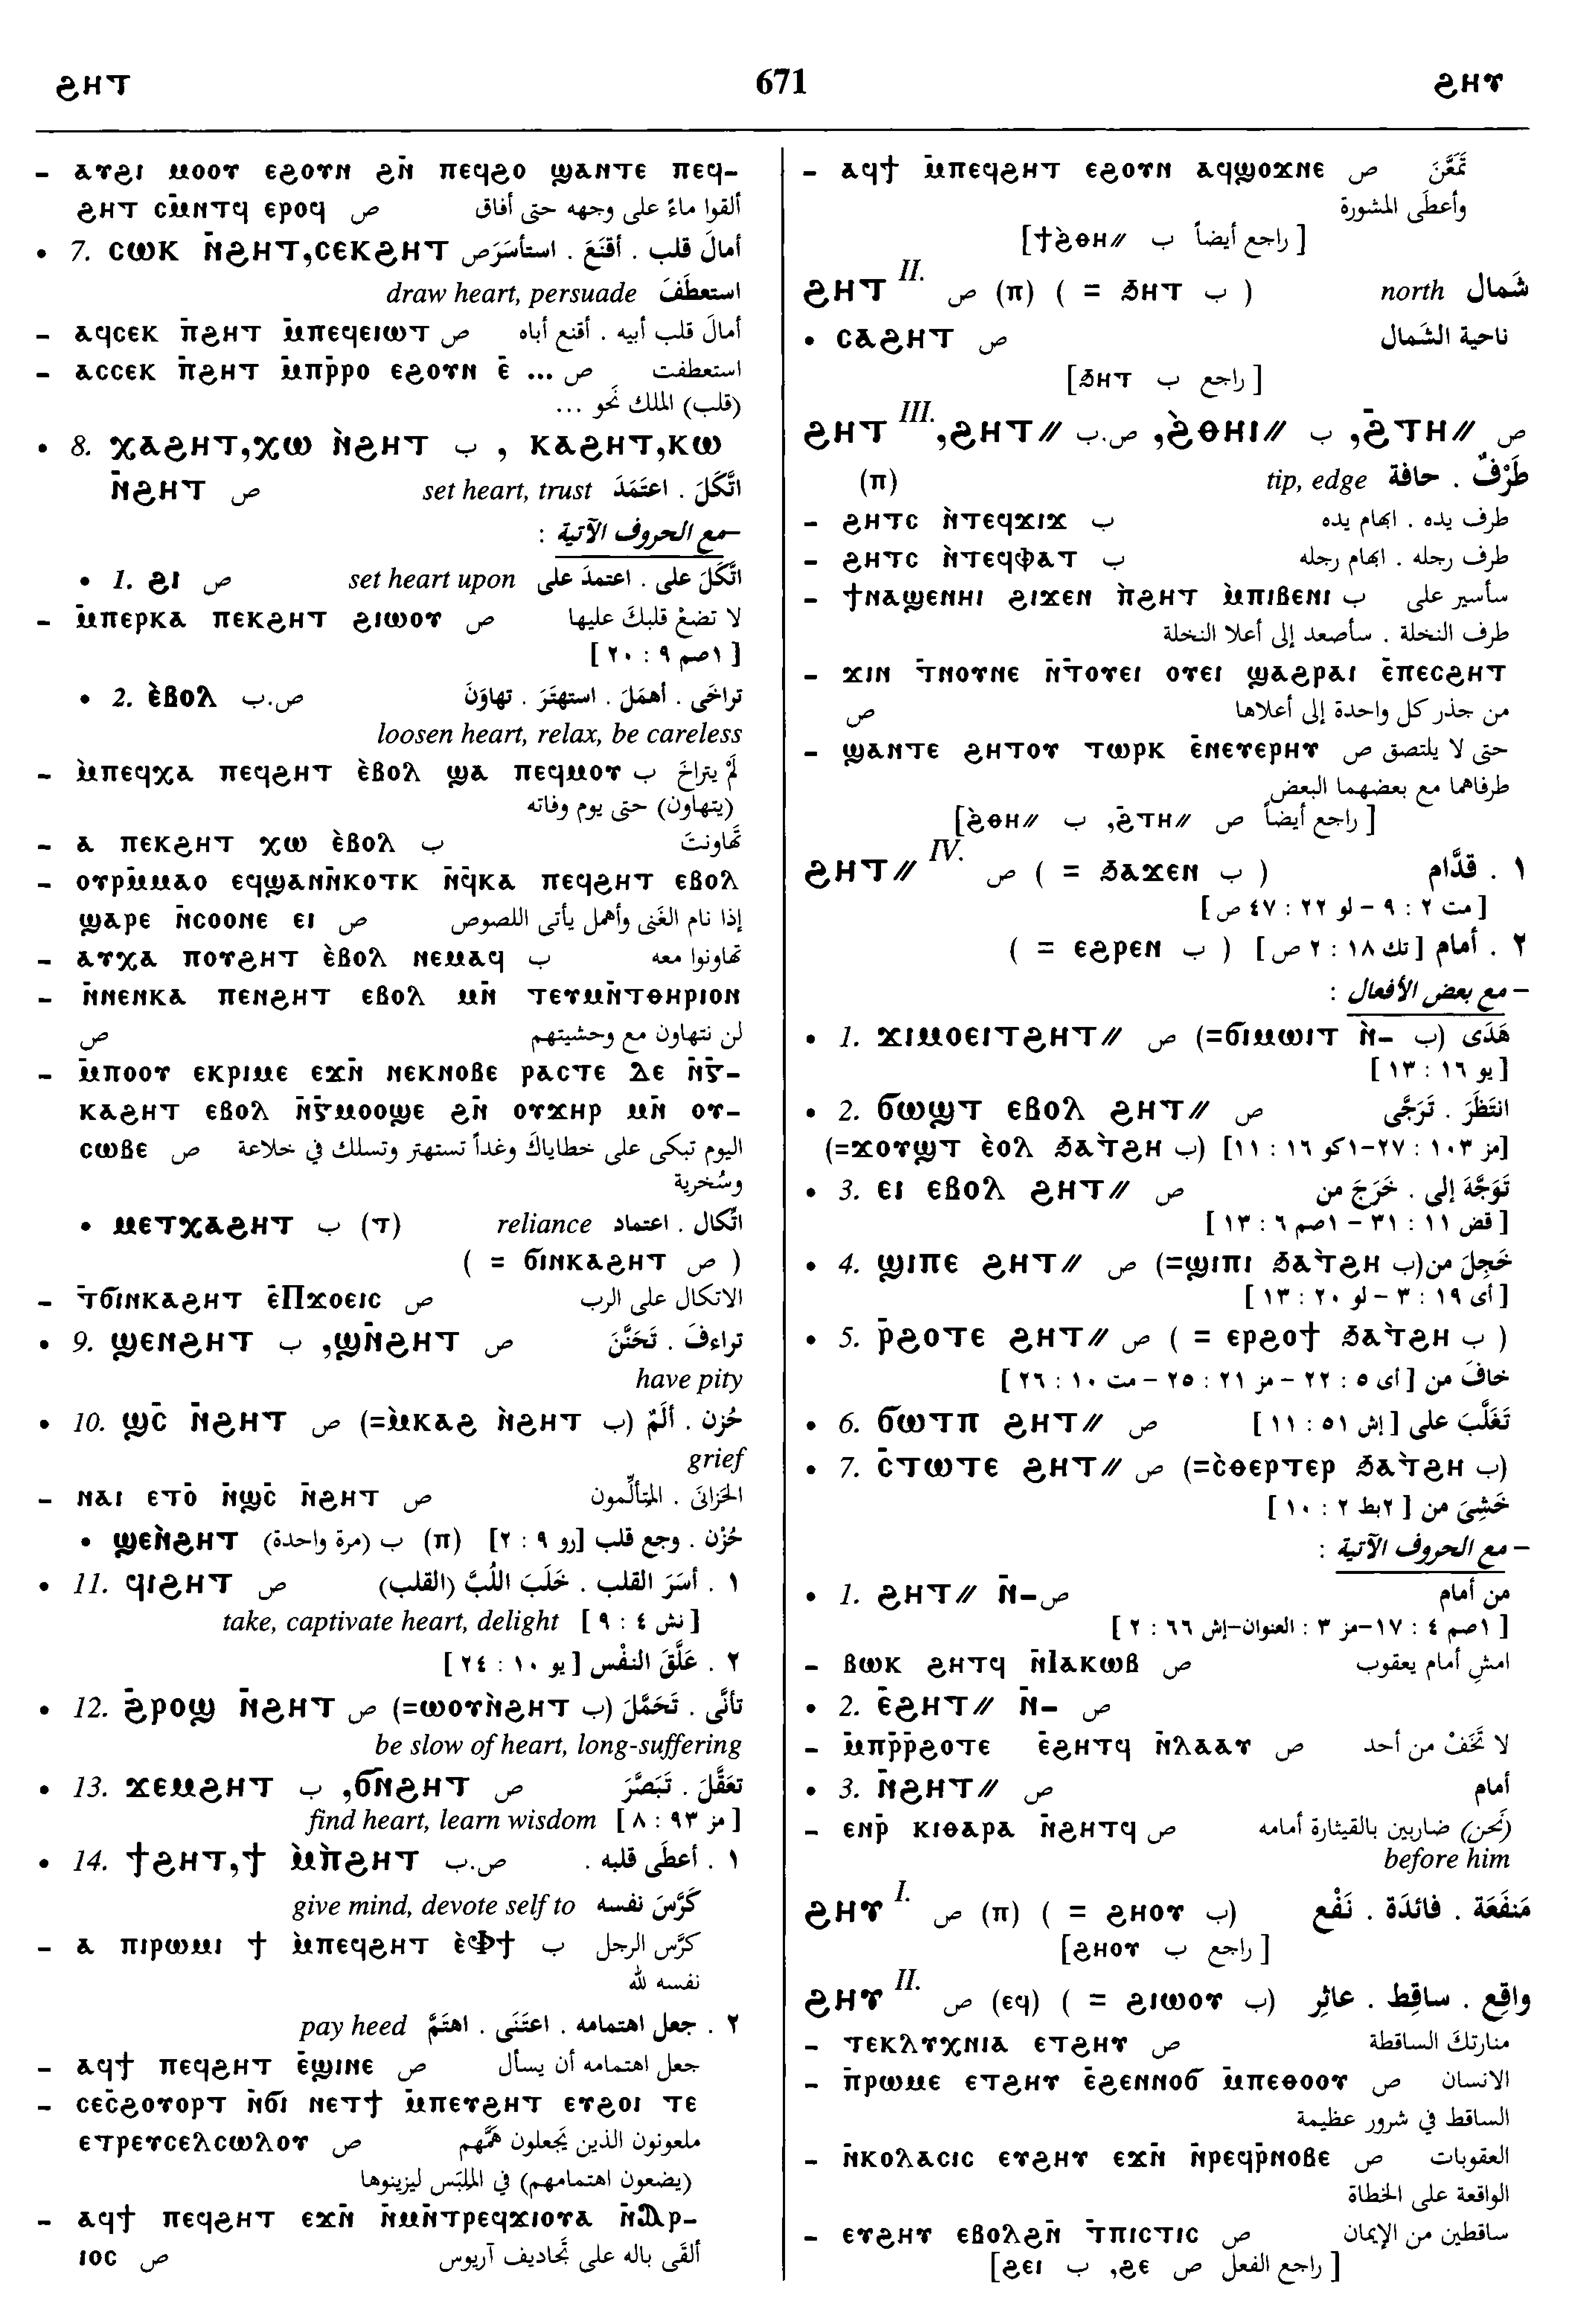 ϩⲏⲧ 671 ϩⲏⲩ
– ⲁⲩϩⲓ ⲙⲟⲟⲩ ⲉϩⲟⲩⲛ ϩⲛ̄ ⲡⲉϥϩⲟ ϣⲁⲛⲧⲉ ⲡⲉϥ–
ϩⲏⲧ ⲥⲙ̄ⲛⲧϥ ⲉⲣⲟϥ ص ألقوا ماءً على وجهه حتى أفاق
• 7. ⲥⲱⲕ ⲛ̄ϩⲏⲧ,ⲥⲉⲕϩⲏⲧ ص أمالَ قلب . أقنَعَ . استأسَرَ
draw heart, persuade استعطَفَ
– ⲁϥⲥⲉⲕ ⲡ̄ϩⲏⲧ ⲙ̄ⲡⲉϥⲉⲓⲱⲧ ص أمالَ قلب أبيه . أقنع أباه
– ⲁⲥⲥⲉⲕ ⲡ̄ϩⲏⲧ ⲙ̄ⲡⲣ̄ⲣⲟ ⲉϩⲟⲩⲛ ⲉ̄ ... ص استعطفت
(قلب) الملك نَحو ...
• 8. ⲭⲁϩⲏⲧ,ⲭⲱ ⲛ̀ϩⲏⲧ ب , ⲕⲁϩⲏⲧ,ⲕⲱ
ⲛ̄ϩⲏⲧ ص set heart, trust اتَّكَلَ . اعتَمَدَ
–مع الحروف الآتية :
• 1. ϩⲓ ص set heart upon اتَّكَلَ على . اعتمدَ على
– ⲙ̄ⲡⲉⲣⲕⲁ ⲡⲉⲕϩⲏⲧ ϩⲓⲱⲟⲩ ص لا تضعْ قلبكَ عليها
[ ١صم ٩ : ٢٠ ]
• 2. ⲉ̀ⲃⲟⲗ ص.ب تراخَى . أهمَلَ . استهتَرَ . تهاوَنَ
loosen heart, relax, be careless
– ⲙ̀ⲡⲉϥⲭⲁ ⲡⲉϥϩⲏⲧ ⲉ̀ⲃⲟⲗ ϣⲁ ⲡⲉϥⲙⲟⲩ ب لَمْ يتراخَ
(يتهاون) حتى يوم وفاته
– ⲁ ⲡⲉⲕϩⲏⲧ ⲭⲱ ⲉ̀ⲃⲟⲗ ب تَهاونتَ
– ⲟⲩⲣⲙ̄ⲙⲁⲟ ⲉϥϣⲁⲛⲛ̄ⲕⲟⲧⲕ ⲛϥ̄ⲕⲁ ⲡⲉϥϩⲏⲧ ⲉⲃⲟⲗ
ϣⲁⲣⲉ ⲛ̄ⲥⲟⲟⲛⲉ ⲉⲓ ص إذا نام الغَنى وأهمل يأتى اللصوص
– ⲁⲩⲭⲁ ⲡⲟⲩϩⲏⲧ ⲉ̀ⲃⲟⲗ ⲛⲉⲙⲁϥ ب تهاونوا معه
– ⲛ̄ⲛⲉⲛⲕⲁ ⲡⲉⲛϩⲏⲧ ⲉⲃⲟⲗ ⲙⲛ̄ ⲧⲉⲩⲙⲛ̄ⲧⲑⲏⲣⲓⲟⲛ
ص لن نتهاون مع وحشيتهم
– ⲙ̄ⲡⲟⲟⲩ ⲉⲕⲣⲓⲙⲉ ⲉϫⲛ̄ ⲛⲉⲕⲛⲟⲃⲉ ⲣⲁⲥⲧⲉ ⲇⲉ ⲛⲅ̄–
ⲕⲁϩⲏⲧ ⲉⲃⲟⲗ ⲛⲅ̄ⲙⲟⲟϣⲉ ϩⲛ̄ ⲟⲩϫⲏⲣ ⲙⲛ̄ ⲟⲩ–
ⲥⲱⲃⲉ ص اليوم تبكى على خطاياكَ وغداً تستهتر وتسلك في خلاعة
وسُخرية
• ⲙⲉⲧⲭⲁϩⲏⲧ ب (ⲧ) reliance اتِّكال . اعتماد
( ص ϭⲓⲛⲕⲁϩⲏⲧ = )
– ⲧ̄ϭⲓⲛⲕⲁϩⲏⲧ ⲉ̄ⲡϫⲟⲉⲓⲥ ص الاتكال على الرب
• 9. ϣⲉⲛϩⲏⲧ ب ,ϣⲛ̄ϩⲏⲧ ص تراءفَ . تَحَنَّنَ
have pity
• 10. ϣⲥ̄ ⲛ̄ϩⲏⲧ ص (=ⲙ̀ⲕⲁϩ ⲛ̀ϩⲏⲧ ب) حُزن . ألَمٌ
grief
– ⲛⲁⲓ ⲉⲧⲟ̄ ⲛ̄ϣⲥ̄ ⲛ̄ϩⲏⲧ ص الحَزانَى . المتألِّمون
• ϣⲉⲛ̀ϩⲏⲧ (مرة واحدة) ب (ⲡ) حُزْن . وجع قلب [رو ٩ : ٢]
• 11. ϥⲓϩⲏⲧ ص ١ . أسَرَ القلب . خَلَبَ اللُبَّ (القلب)
take, captivate heart, delight [ نش ٤ : ٩ ]
٢ . عَلَّقَ النفْس [ يو ١٠ : ٢٤ ]
• 12. ϩ̄ⲣⲟϣ ⲛ̄ϩⲏⲧ ص (=ⲱⲟⲩⲛ̀ϩⲏⲧ ب) تأنَّى . تَحَمَّلَ
be slow of heart, long-suffering
• 13. ϫⲉⲙϩⲏⲧ ب ,ϭⲛ̄ϩⲏⲧ ص تعَقَّلَ . تَبَصَّرَ
find heart, learn wisdom [ مز ٩٣ : ٨ ]
• 14. ϯϩⲏⲧ,ϯ ⲙ̀ⲡ̀ϩⲏⲧ ص.ب ١ . أعطَى قلبه .
give mind, devote self to كَرَّسَ نفسه
– ⲁ ⲡⲓⲣⲱⲙⲓ ϯ ⲙ̀ⲡⲉϥϩⲏⲧ ⲉ̀ⲫϯ ب كرَّس الرجل
نفسه لله
٢ . جعل اهتمامه . اعتَنَى . اهتَمَّ pay heed
– ⲁϥϯ ⲡⲉϥϩⲏⲧ ⲉ̄ϣⲓⲛⲉ ص جعل اهتمامه أن يسأل
– ⲥⲉⲥ̄ϩⲟⲩⲟⲣⲧ ⲛ̄ϭⲓ ⲛⲉⲧϯ ⲙ̄ⲡⲉⲩϩⲏⲧ ⲉⲩϩⲟⲓ ⲧⲉ
ⲉⲧⲣⲉⲩⲥⲉⲗⲥⲱⲗⲟⲩ ص ملعونون الذين يَجعلون هَمَّهم
(يضعون اهتمامهم) في المِلبَس ليزينوها
– ⲁϥϯ ⲡⲉϥϩⲏⲧ ⲉϫⲛ̄ ⲙ̄ⲙⲛ̄ⲧⲣⲉϥϫⲓⲟⲩⲁ ⲛ̄ⲁⲣ–
ⲓⲟⲥ ص ألقَى باله على تَجاديف آريوس
– ⲁϥϯ ⲙ̄ⲡⲉϥϩⲏⲧ ⲉϩⲟⲩⲛ ⲁϥϣⲟϫⲛⲉ ص تَمَعَّنَ
وأعطَى المشورة
[ راجع أيضاً ب ϯϩ̀ⲑⲏ//]
ϩⲏⲧ II. ص (ⲡ) ( = ϧⲏⲧ ب ) north شَمال
• ⲥⲁϩⲏⲧ ص ناحية الشمال
[ راجع ب ϧⲏⲧ]
ϩⲏⲧ III.,ϩⲏⲧ// ص.ب ,ϩ̀ⲑⲏⲓ// ب ,ϩ̄ⲧⲏ// ص
(ⲡ) tip, edge طَرْفٌ . حافة
– ϩⲏⲧⲥ ⲛ̀ⲧⲉϥϫⲓϫ ب طرف يده . ابهام يده
– ϩⲏⲧⲥ ⲛ̀ⲧⲉϥⲫⲁⲧ ب طرف رجله . ابهام رجله
– ϯⲛⲁϣⲉⲛⲏⲓ ϩⲓϫⲉⲛ ⲡ̀ϩⲏⲧ ⲙ̀ⲡⲓⲃⲉⲛⲓ ب سأسير على
طرف النخلة . سأصعد إلى أعلا النخلة
– ϫⲓⲛ ⲧ̄ⲛⲟⲩⲛⲉ ⲛ̄ⲧⲟⲩⲉⲓ ⲟⲩⲉⲓ ϣⲁϩⲣⲁⲓ ⲉ̄ⲡⲉⲥϩⲏⲧ
ص من جذر كل واحدة إلى أعلاها
– ϣⲁⲛⲧⲉ ϩⲏⲧⲟⲩ ⲧⲱⲣⲕ ⲉ̄ⲛⲉⲩⲉⲣⲏⲩ ص حتى لا يلتصق
طرفاهما مع بعضهما البعض
[ راجع أيضاً ص ϩ̄ⲧⲏ//, ب ϩ̀ⲑⲏ//]
ϩⲏⲧ// IV. ص ( = ϧⲁϫⲉⲛ ب ) ١ . قدَّام
[ مت ٢ : ٩ – لو ٢٢ : ٤٧ ص ]
٢ . أمام [ تك ١٨ : ٢ ص ] ( ب ⲉϩⲣⲉⲛ = )
– مع بعض الأفعال :
• 1. ϫⲓⲙⲟⲉⲓⲧϩⲏⲧ// ص (=ϭⲓⲙⲱⲓⲧ ⲛ̀– ب) هَدَى
[ يو ١٦ : ١٣ ]
• 2. ϭⲱϣⲧ ⲉⲃⲟⲗ ϩⲏⲧ// ص انتَظَرَ . تَرَجَّى
[مز ١٠٣ : ٢٧–١كو ١٦ : ١١] (ب ϫⲟⲩϣⲧ ⲉ̀ⲟⲗ ϧⲁⲧ̀ϩⲏ=)
• 3. ⲉⲓ ⲉⲃⲟⲗ ϩⲏⲧ// ص تَوَجَّهَ إلى . خَرَجَ من
[ قض ١١ : ٣١ – ١صم ٦ : ١٣ ]
• 4. ϣⲓⲡⲉ ϩⲏⲧ// ص (=ϣⲓⲡⲓ ϧⲁⲧ̀ϩⲏ ب) خَجِلَ من
[ أى ١٩ : ٣ – لو ٢٠ : ١٣ ]
• 5. ⲣ̄ϩⲟⲧⲉ ϩⲏⲧ// ص ( = ⲉⲣϩⲟϯ ϧⲁⲧ̀ϩⲏ ب )
خافَ من [ أى ٥ : ٢٢ – مز ٢١ : ٢٥ – مت ١٠ : ٢٦ ]
• 6. ϭⲱⲧⲡ ϩⲏⲧ// ص تَغَلَّبَ على [ إش ٥١ : ١١ ]
• 7. ⲥ̄ⲧⲱⲧⲉ ϩⲏⲧ// ص (=ⲥ̀ⲑⲉⲣⲧⲉⲣ ϧⲁⲧ̀ϩⲏ ب)
خَشِىَ من [ ٢بط ٢ : ١٠ ]
– مع الحروف الآتية :
• 1. ϩⲏⲧ// ⲛ̄– ص من أمام
[ ١صم ٤ : ١٧–مز ٣ : العنوان–إش ٦٦ : ٢ ]
– ⲃⲱⲕ ϩⲏⲧϥ ⲛ̄ⲓⲁⲕⲱⲃ ص امشِ أمام يعقوب
• 2. ⲉ̄ϩⲏⲧ// ⲛ̄– ص
– ⲙ̄ⲡⲣ̄ⲣ̄ϩⲟⲧⲉ ⲉ̄ϩⲏⲧϥ ⲛ̄ⲗⲁⲁⲩ ص لا تَخَفْ من أحد
• 3. ⲛ̄ϩⲏⲧ// ص أمام
– ⲉⲛⲣ̄ ⲕⲓⲑⲁⲣⲁ ⲛ̄ϩⲏⲧϥ ص (نَحن) ضاربين بالقيثارة أمامه
before him
ϩⲏⲩ I. ص (ⲡ) ( = ϩⲏⲟⲩ ب) مَنفَعَة . فائدَة . نَفْع
[ راجع ب ϩⲏⲟⲩ]
ϩⲏⲩ II. ص (ⲉϥ) ( = ϩⲓⲱⲟⲩ ب) واقِع . ساقِط . عاثِر
– ⲧⲉⲕⲗⲩⲭⲛⲓⲁ ⲉⲧϩⲏⲩ ص منارتكَ الساقطة
– ⲡ̄ⲣⲱⲙⲉ ⲉⲧϩⲏⲩ ⲉ̄ϩⲉⲛⲛⲟϭ ⲙ̄ⲡⲉⲑⲟⲟⲩ ص الانسان
الساقط في شرور عظيمة
– ⲛ̄ⲕⲟⲗⲁⲥⲓⲥ ⲉⲩϩⲏⲩ ⲉϫⲛ̄ ⲛ̄ⲣⲉϥⲣ̄ⲛⲟⲃⲉ ص العقوبات
الواقعة على الخطاة
– ⲉⲩϩⲏⲩ ⲉⲃⲟⲗϩⲛ̄ ⲧ̄ⲡⲓⲥⲧⲓⲥ ص ساقطين من الإيمان
[ راجع الفعل ص ϩⲉ, ب ϩⲉⲓ]